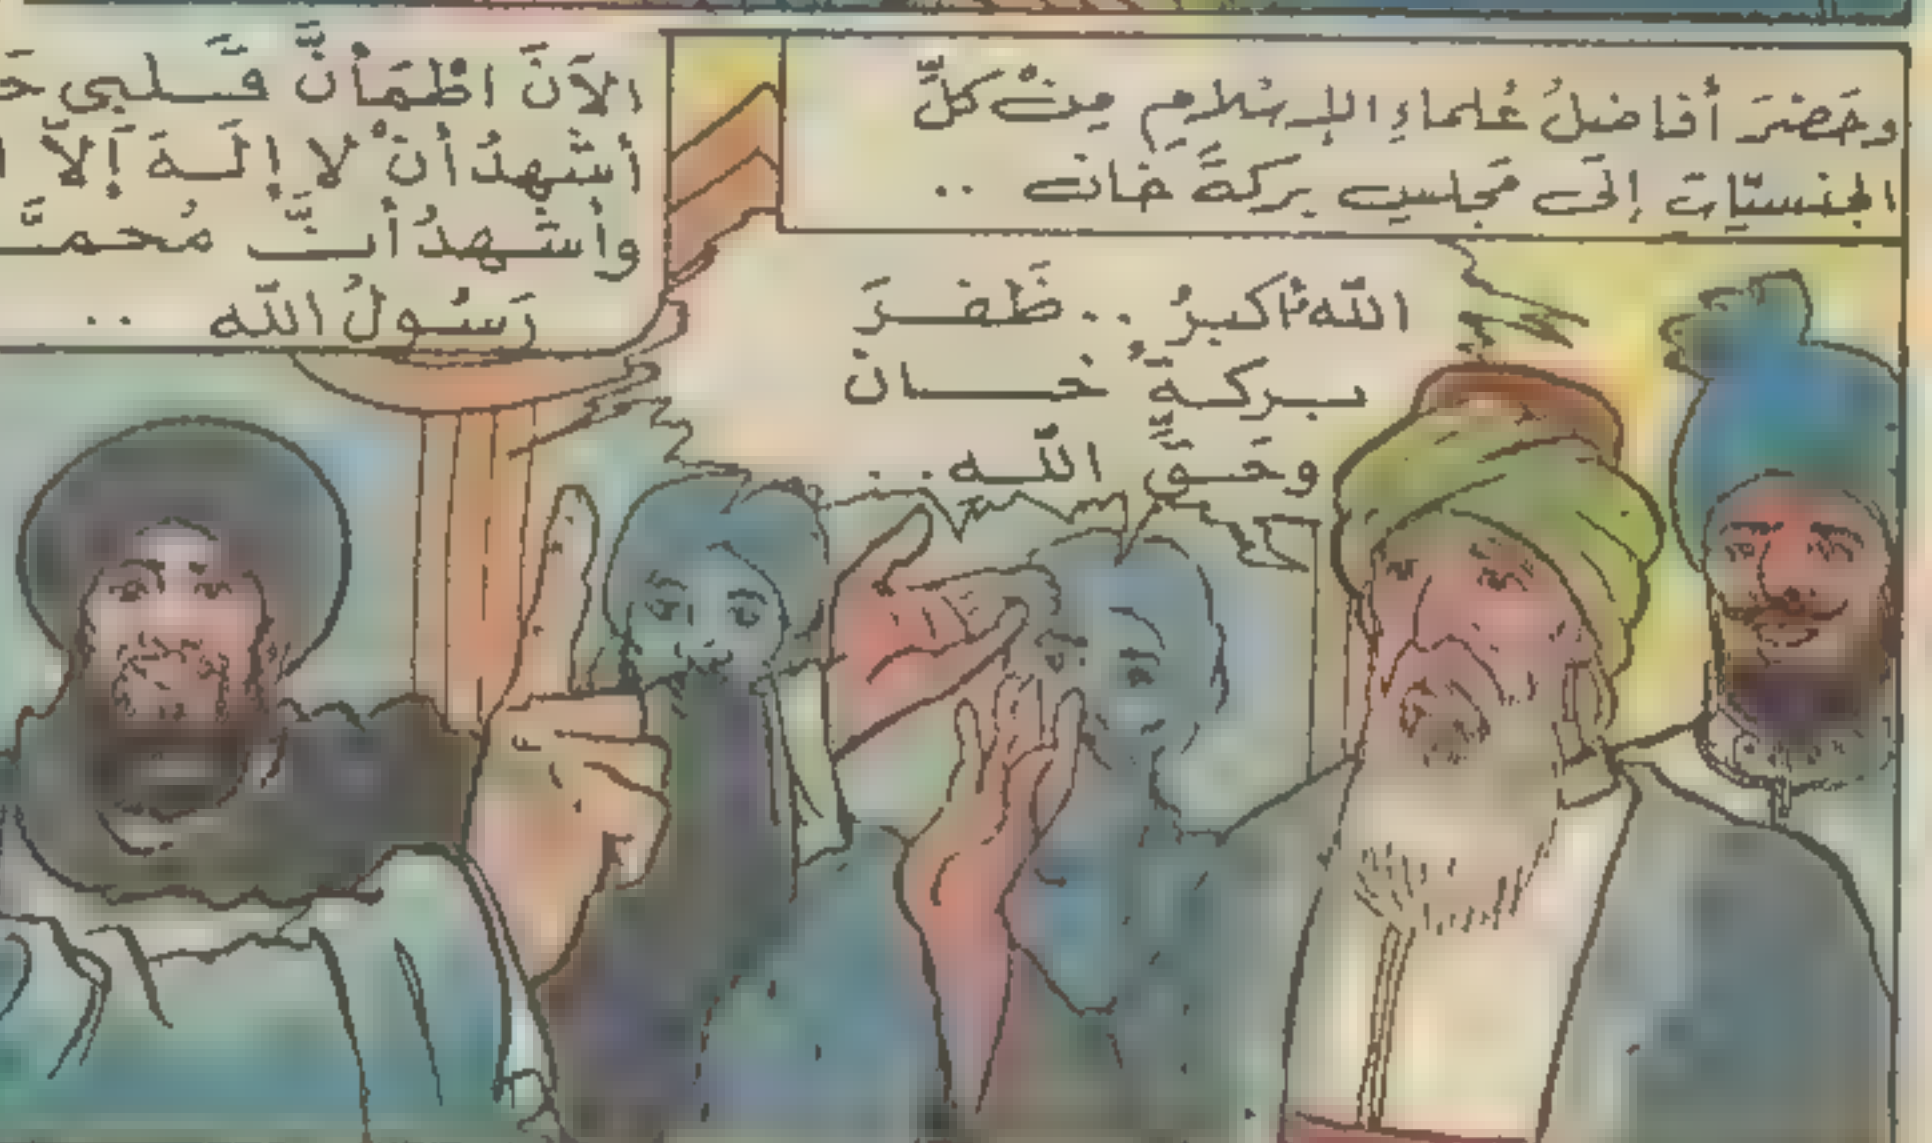 وحَضَرَ أفاضلُ عُلماءِ الإسْلامِ مِنْ كلِّ
الجنسيّاتِ إلَى مَجلسِ بركةَ خان ..
اللهُ أكبرُ .. ظَفرَ
بركةُ خان
وحَقِّ اللّه ..
الآنَ اطْمَأنَّ قَلبي
أشهدُ أنْ لا إلَهَ إلاّ
وأشهدُ أنَّ مُحمَّـ
رَسُولُ اللّه ..